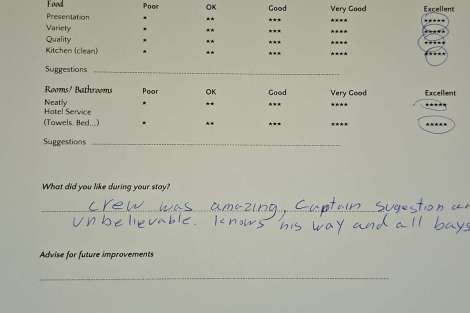 Food Poor OK Good Very Good Excellent
Presentation * ** *** **** *****
Variety * ** *** **** *****
Quality * ** *** **** *****
Kitchen (clean) * ** *** **** *****
Suggestions
Rooms/ Bathrooms Poor OK Good Very Good Excellent
Neatly * ** *** **** *****
Hotel Service
(Towels, Bed...) * ** *** **** *****
Suggestions
What did you like during your stay?
crew was amazing, Captain sugestion
unbelievable. Knows his way and all bays
Advise for future improvements